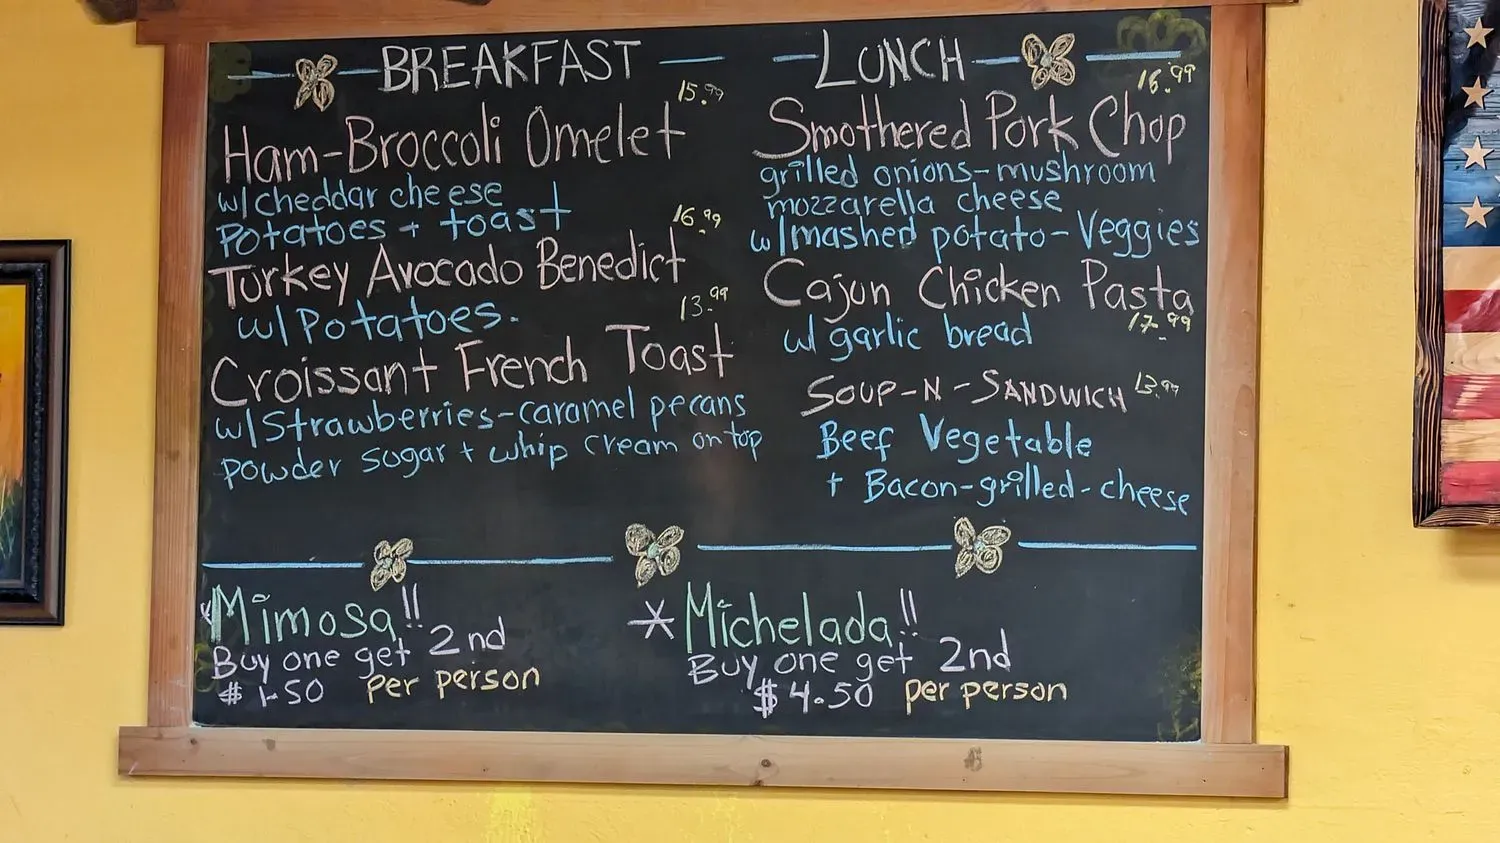 BREAKFAST
15.99
Ham-Broccoli Omelet
w/cheddar cheese
Potatoes + toast
16.99
Turkey Avocado Benedict
w/Potatoes.
13.99
Croissant French Toast
w/Strawberries-caramel pecans
powder sugar + whip cream on top
LUNCH
16.99
Smothered Pork Chop
grilled onions-mushroom
mozzarella cheese
w/mashed potato-Veggies
Cajun Chicken Pasta
w/ garlic bread 17.99
SOUP-N-SANDWICH 13.99
Beef Vegetable
+ Bacon-grilled-cheese
*Mimosa!!
Buy one get 2nd
$1.50 per person
* Michelada!!
Buy one get 2nd
$4.50 per person